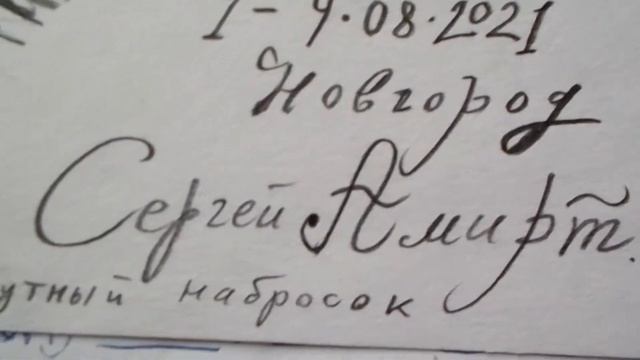 1-4.08.2021
Новгород
Сергей Амирт.
утный набросок